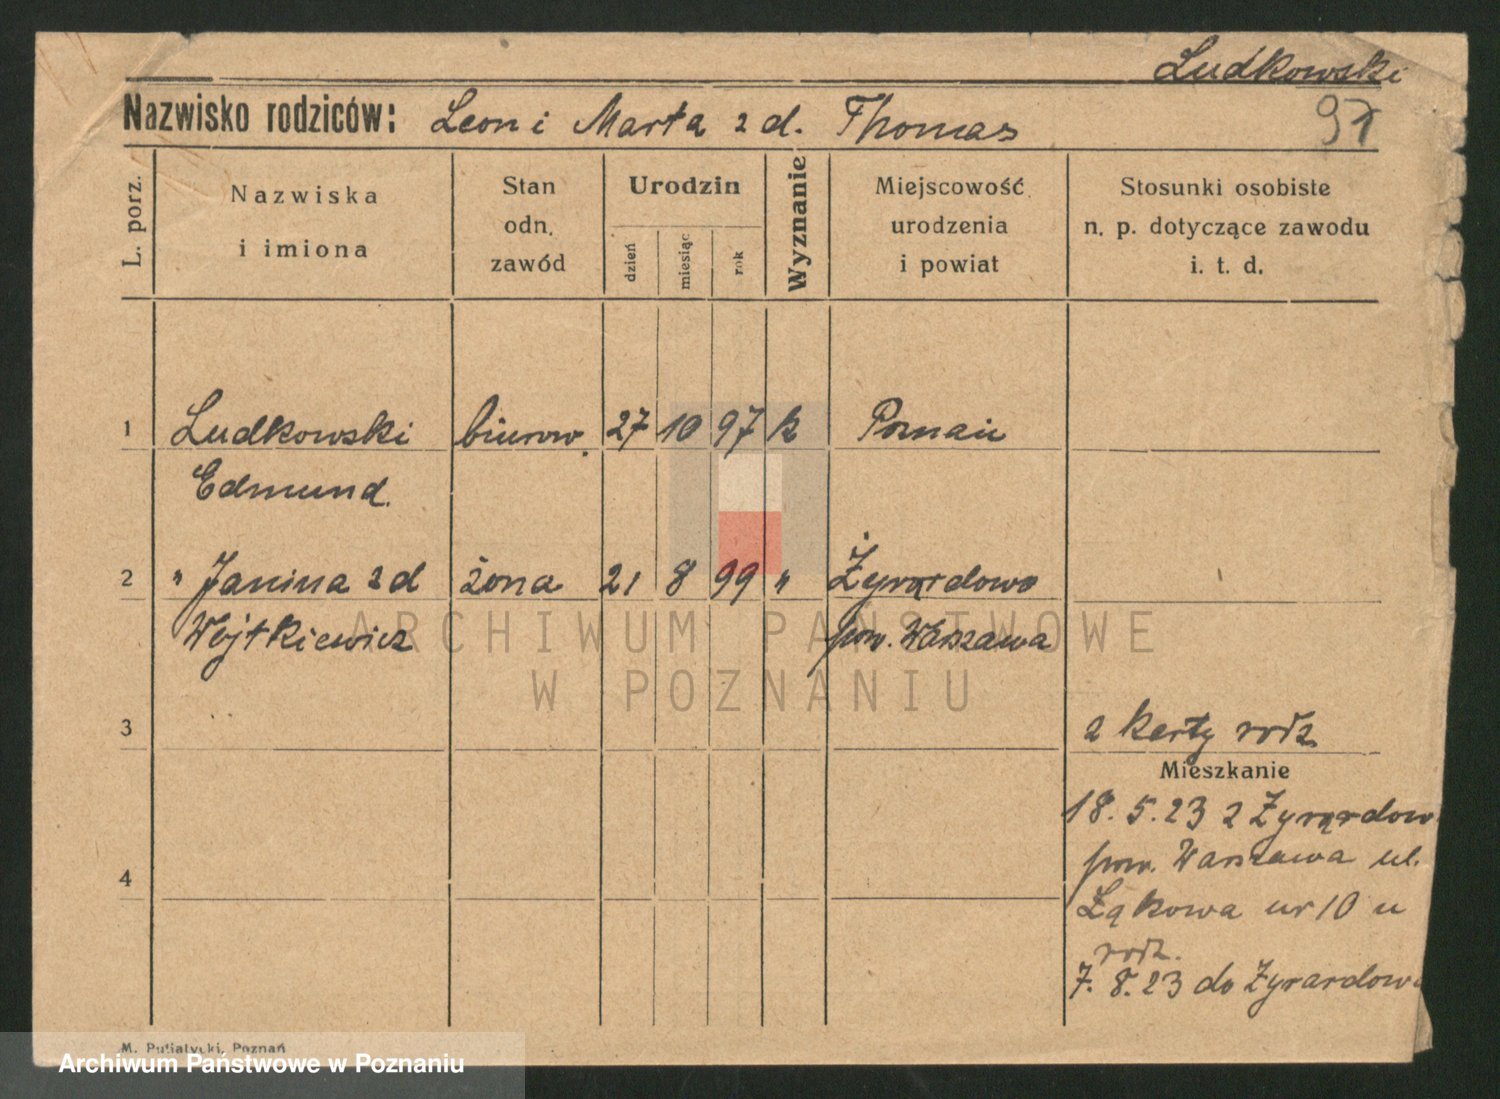 Ludkowski
97
Nazwisko rodziców: Leon i Marta z d. Thomas
L. porz.
Nazwiska
i imiona
Stan
odn.
zawód
Urodzin
dzień
miesiąc
rok
Wyznanie
Miejscowość
urodzenia
i powiat
Stosunki osobiste
n. p. dotyczące zawodu
i. t. d.
1 Ludkowski biurow. 27 10 97 k Poznań
Edmund.
2 " Janina z d żona 21 8 99 " Żyrardowo
Wojtkiewicz pow. Warszawa
ARCHIWUM PAŃSTWOWE
W POZNANIU
3
2 karty rodz
Mieszkanie
18. 5. 23 z Żyrardow
4
pow. Warszawa ul.
Łąkowa nr 10 u
rodz.
7. 8. 23 do Żyrardow
M. Putiatycki, Poznań
Archiwum Państwowe w Poznaniu